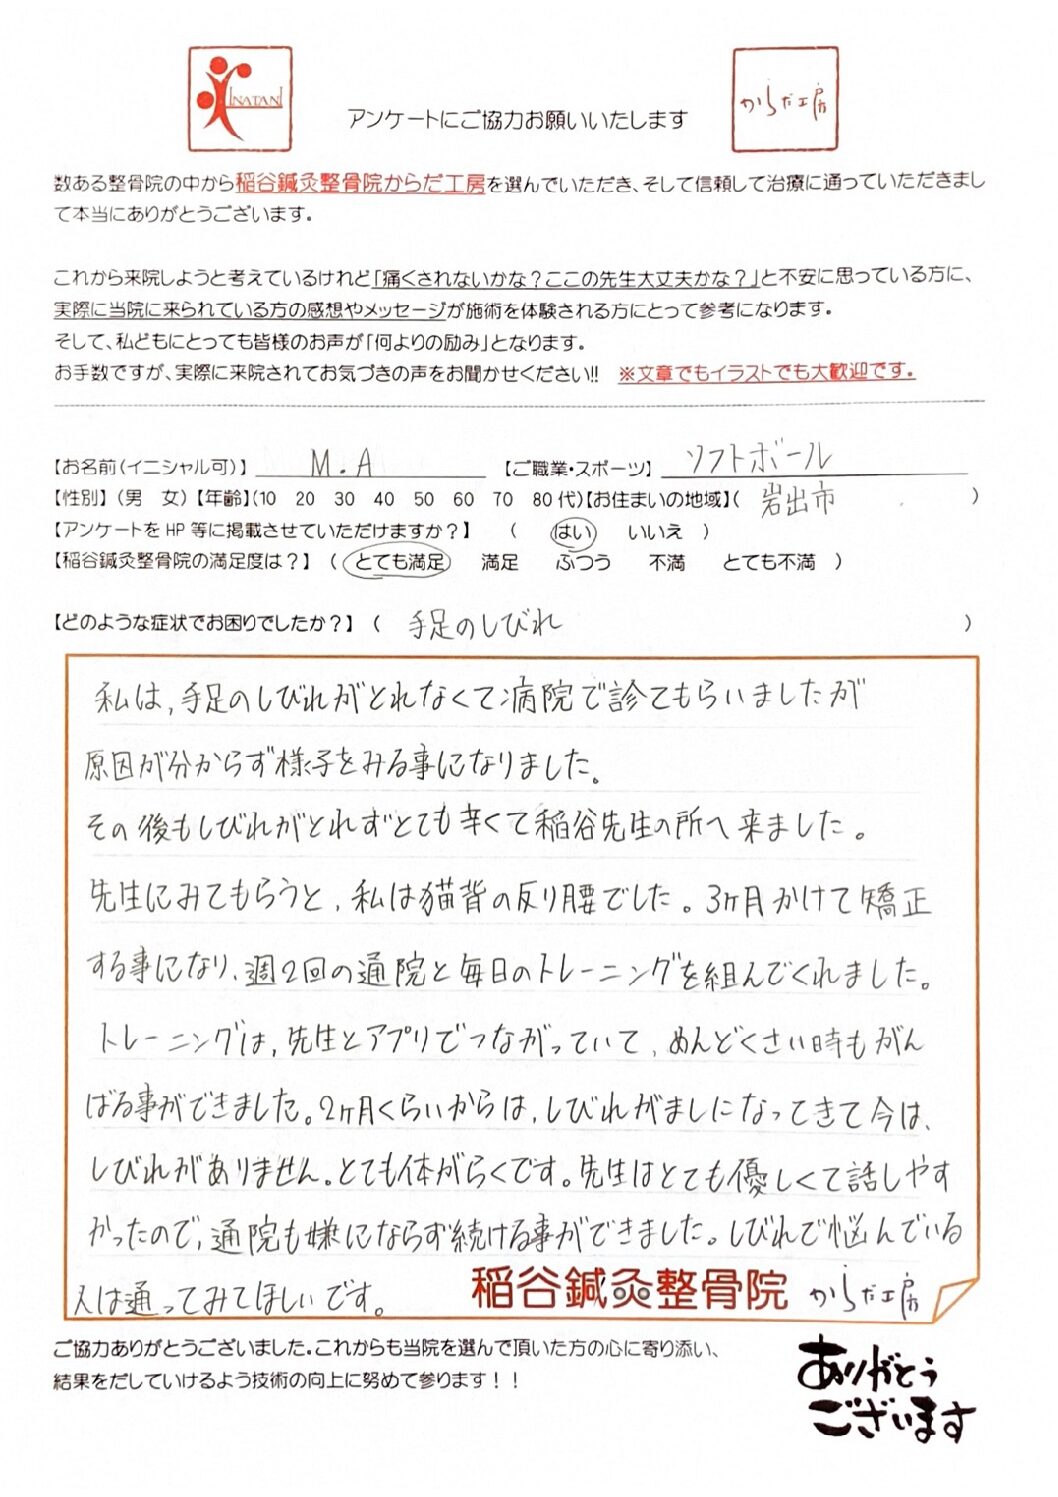 INATANI
アンケートにご協力お願いいたします
からだ工房
数ある整骨院の中から稲谷鍼灸整骨院からだ工房を選んでいただき、そして信頼して治療に通っていただきまし
て本当にありがとうございます。
これから来院しようと考えているけれど「痛くされないかな？ここの先生大丈夫かな？」と不安に思っている方に、
実際に当院に来られている方の感想やメッセージが施術を体験される方にとって参考になります。
そして、私どもにとっても皆様のお声が「何よりの励み」となります。
お手数ですが、実際に来院されてお気づきの声をお聞かせください!! ※文章でもイラストでも大歓迎です。
【お名前（イニシャル可）】 M.A 【ご職業・スポーツ】 ソフトボール
【性別】（男 女）【年齢】（10 20 30 40 50 60 70 80代）【お住まいの地域】（ 岩出市 ）
【アンケートをHP等に掲載させていただけますか？】 （ はい いいえ ）
【稲谷鍼灸整骨院の満足度は？】 （ とても満足 満足 ふつう 不満 とても不満 ）
【どのような症状でお困りでしたか？】 （ 手足のしびれ ）
私は、手足のしびれがとれなくて病院で診てもらいましたが
原因が分からず様子をみる事になりました。
その後もしびれがとれずとても辛くて稲谷先生の所へ来ました。
先生にみてもらうと、私は猫背の反り腰でした。3ヶ月かけて矯正
する事になり、週2回の通院と毎日のトレーニングを組んでくれました。
トレーニングは、先生とアプリでつながっていて、めんどくさい時もがん
ばる事ができました。2ヶ月くらいからは、しびれがましになってきて今は、
しびれがありません。とても体がらくです。先生はとても優しくて話しやす
かったので、通院も嫌にならず続ける事ができました。しびれで悩んでいる
人は通ってみてほしいです。
稲谷鍼灸整骨院 からだ工房
ご協力ありがとうございました。これからも当院を選んで頂いた方の心に寄り添い、
結果をだしていけるよう技術の向上に努めて参ります！！
ありがとう
ございます